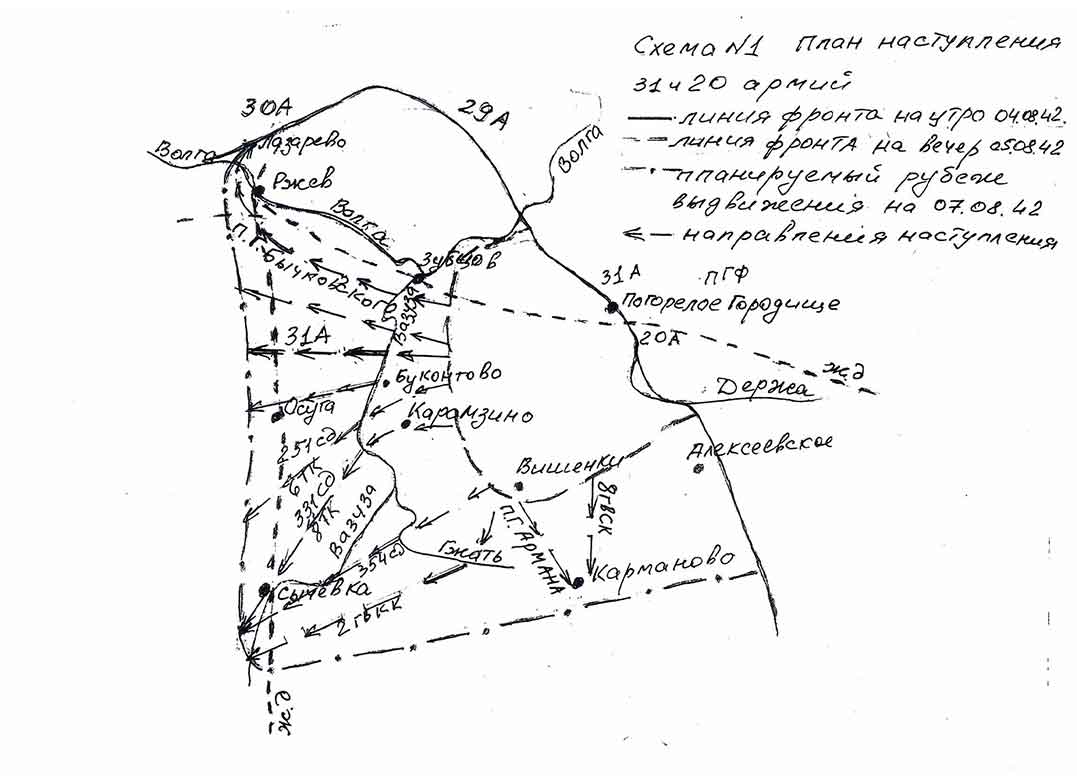 Схема N1 План наступления
31 и 20 армий
линия фронта на утро 04.08.42.
линия фронта на вечер 05.08.42
планируемый рубеж
выдвижения на 07.08.42
направления наступления
30А
29А
Волга
Лазарево
Волга
Ржев
Волга
П.Г. Бычковского
Зубцов
Вазуза
31А
ПГФ
Погорелое Городище
20А
ж.д
31А
Буконтово
Держа
Осуга
Карамзино
251 сд
6ТК
331 сд
8ТК
Вазуза
Алексеевское
Вишенки
8ГВСК
П.Г. Армана
354 сд
Гжать
Карманово
Сычевка
2ГВКК
ж.д